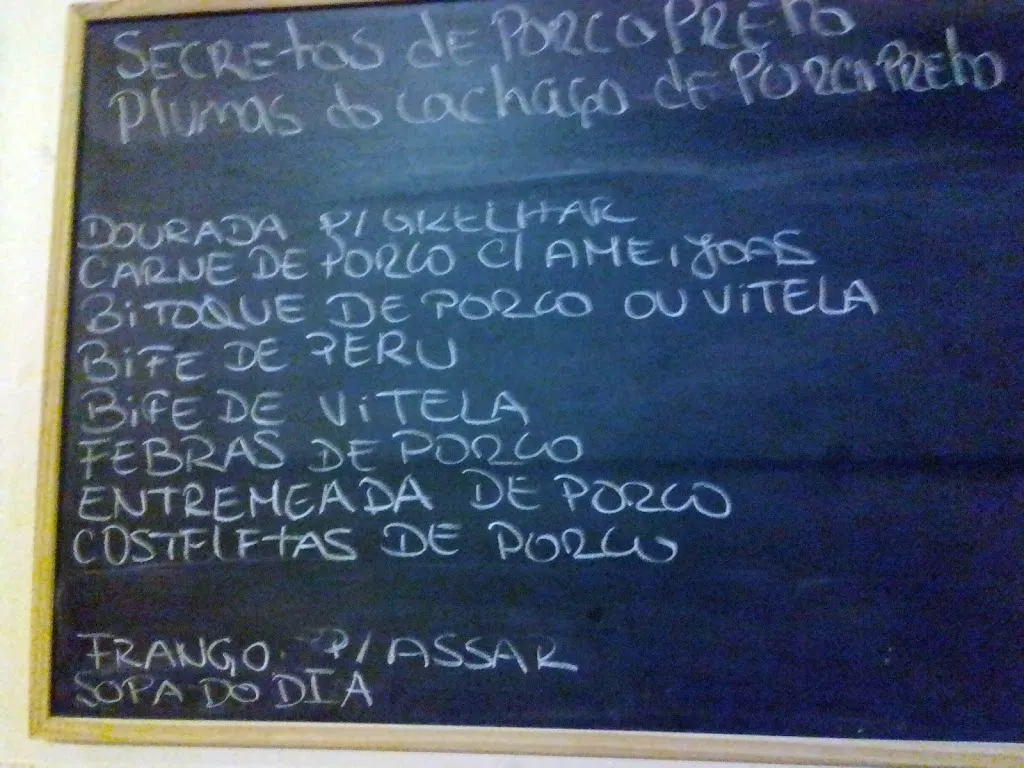 SECREtOS dE PORCO PREtO
Plumas do cachaço dE PORCO PREtO
DOURADA P/ GRELHAR
CARNE DE PORCO C/ AMEIJOAS
BiTOQUE DE PORCO OU ViTELA
BiFE DE PERU
BiFE DE ViTELA
FEBRAS DE PORCO
ENTREMEADA DE PORCO
COSTELETAS DE PORCO
FRANGO P/ ASSAR
SOPA DO DIA